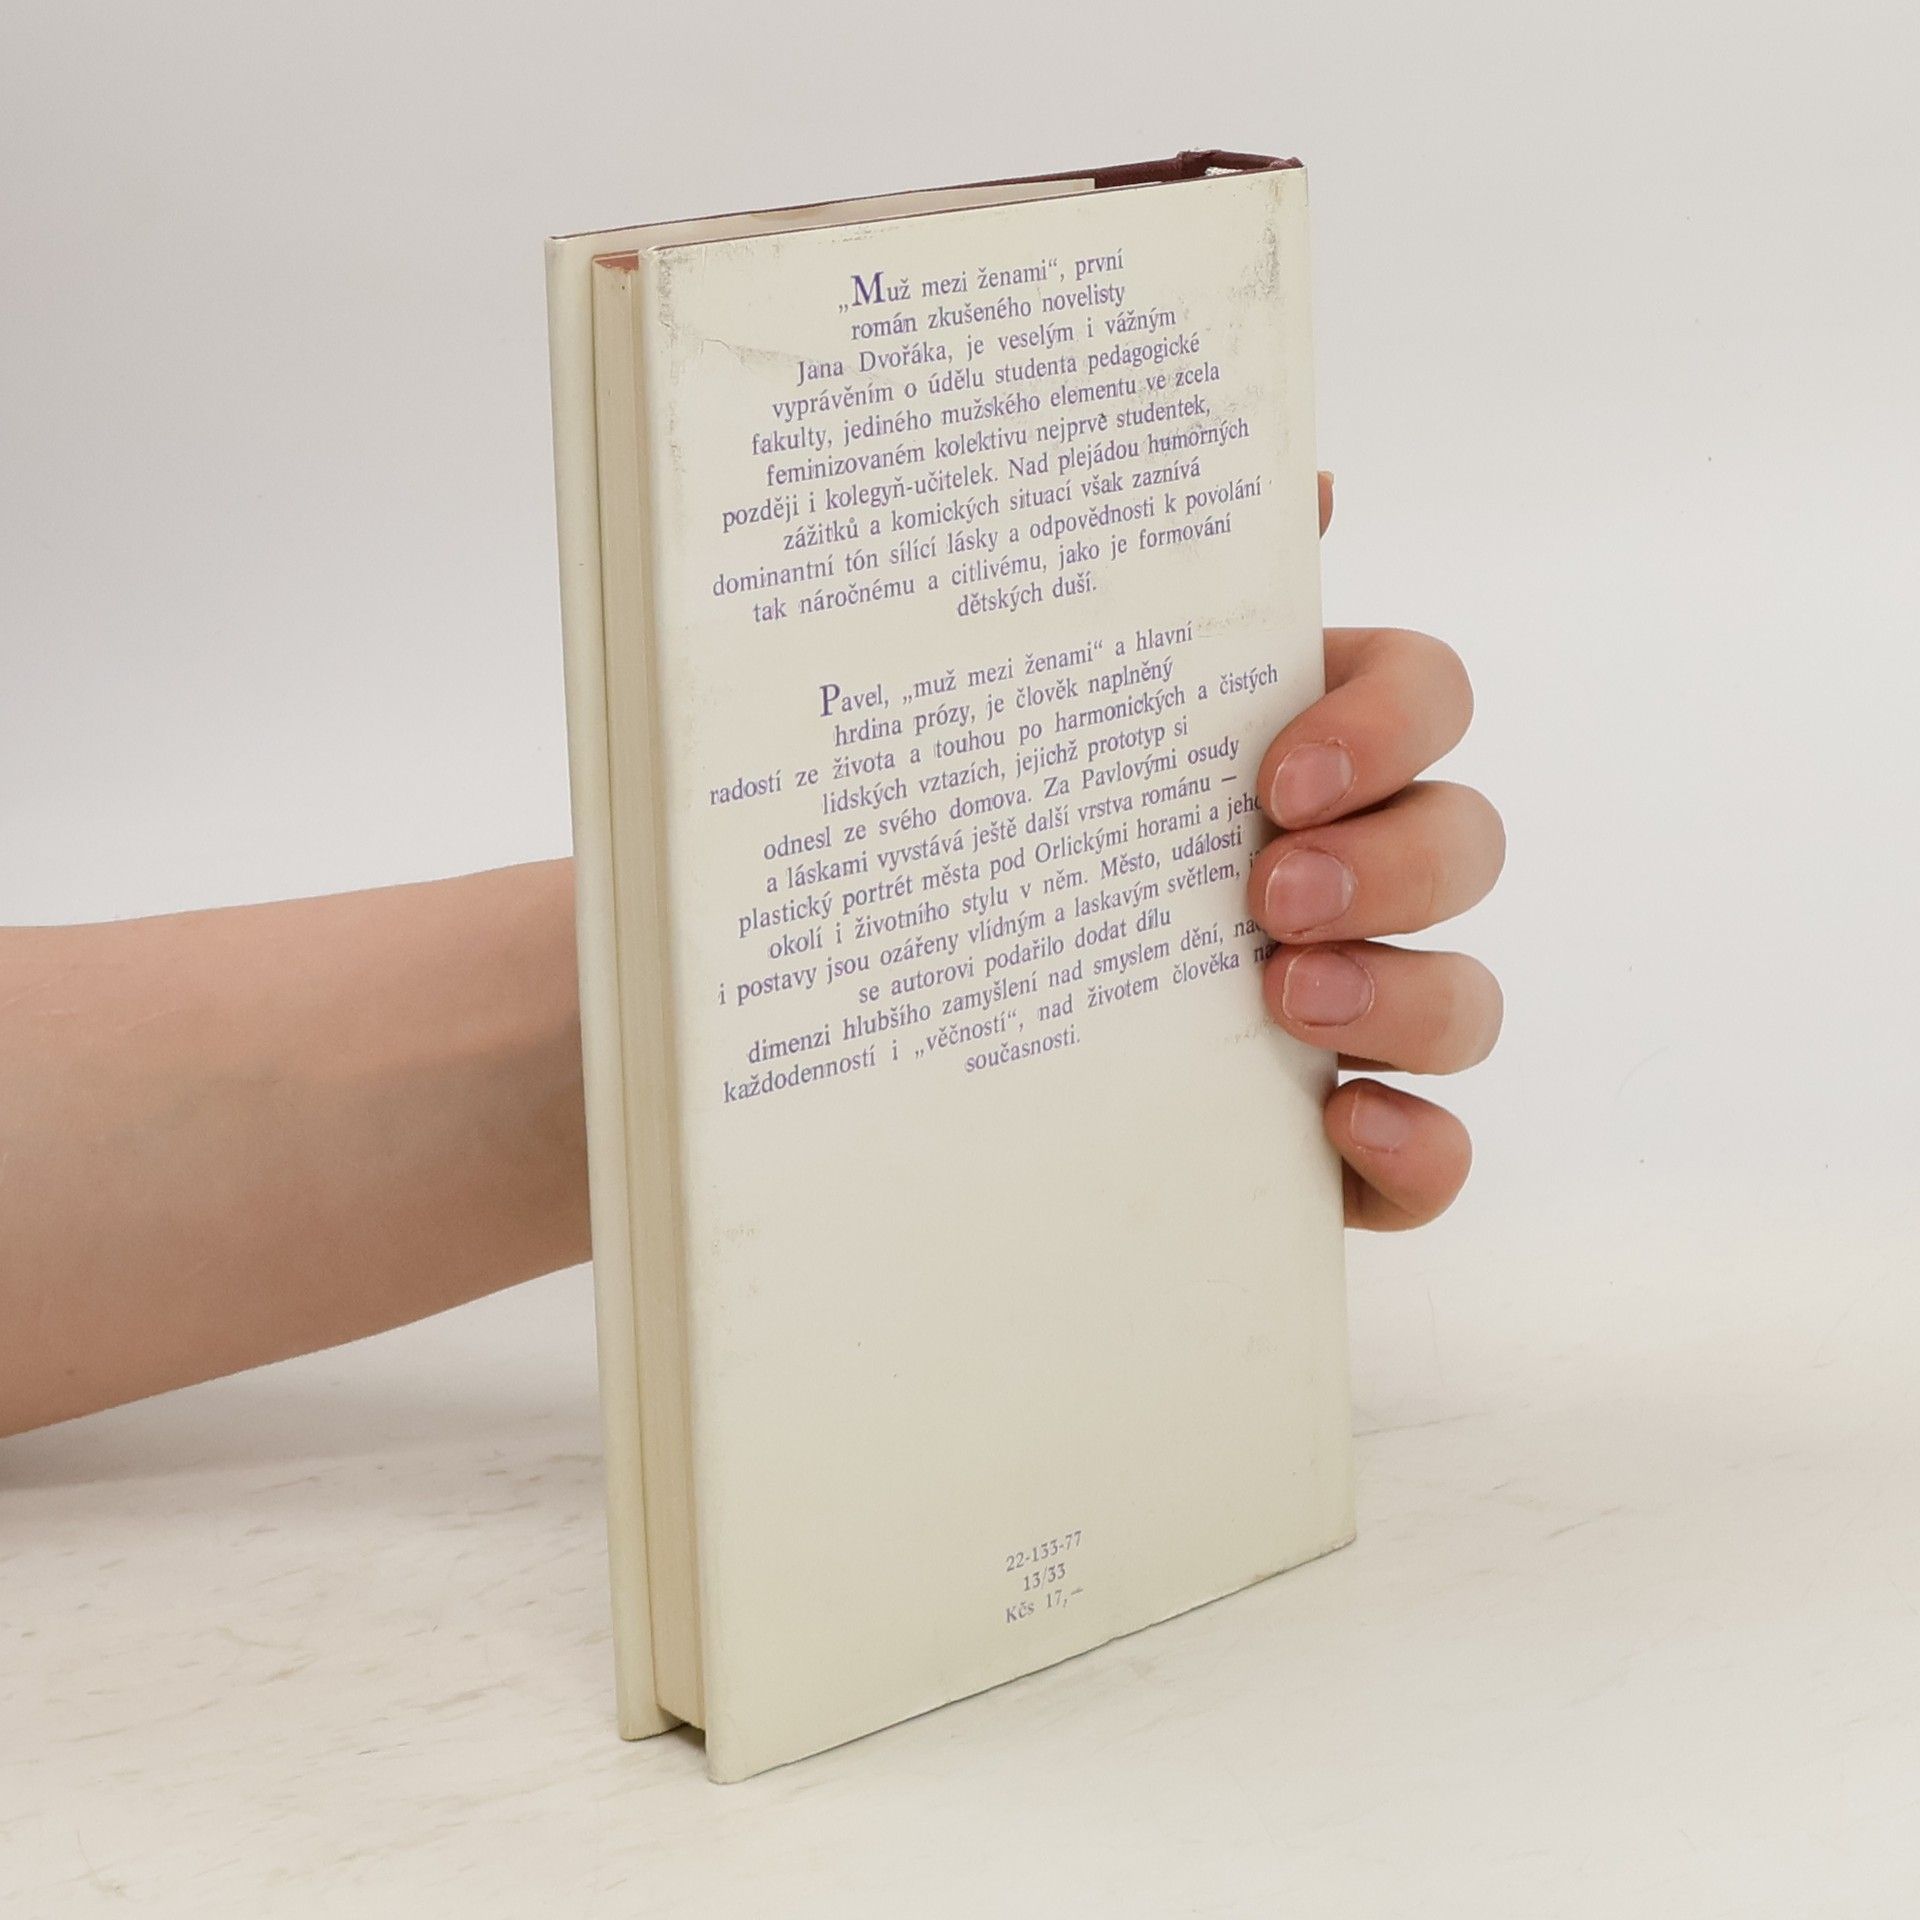 „Muž mezi ženami“, první
román zkušeného novelisty
Jana Dvořáka, je veselým i vážným
vyprávěním o údělu studenta pedagogické
fakulty, jediného mužského elementu ve zcela
feminizovaném kolektivu nejprve studentek,
později i kolegyň-učitelek. Nad plejádou humorných
zážitků a komických situací však zaznívá
dominantní tón sílící lásky a odpovědnosti k povolání
tak náročnému a citlivému, jako je formování
dětských duší.
Pavel, „muž mezi ženami“ a hlavní
hrdina prózy, je člověk naplněný
radostí ze života a touhou po harmonických a čistých
lidských vztazích, jejichž prototyp si
odnesl ze svého domova. Za Pavlovými osudy
a láskami vyvstává ještě další vrstva románu —
plastický portrét města pod Orlickými horami a jeho
okolí i životního stylu v něm. Město, události
i postavy jsou ozářeny vlídným a laskavým světlem,
se autorovi podařilo dodat dílu
dimenzi hlubšího zamyšlení nad smyslem dění,
každodenností i „věčností“, nad životem člověka
současnosti.
22-133-77
13/33
Kčs 17,—